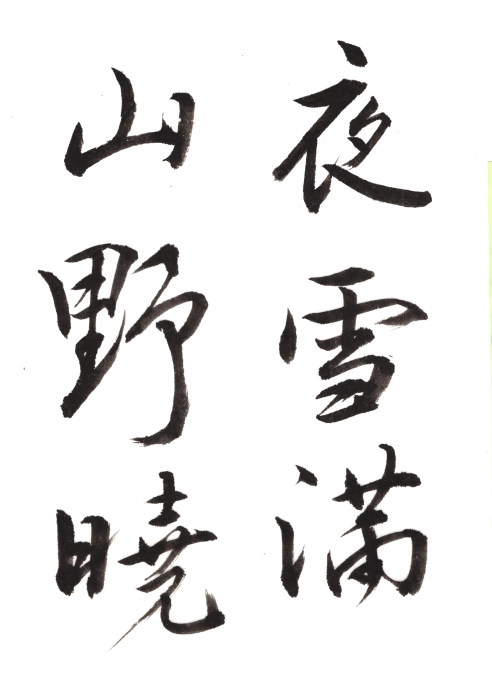 夜雪満
山野暁